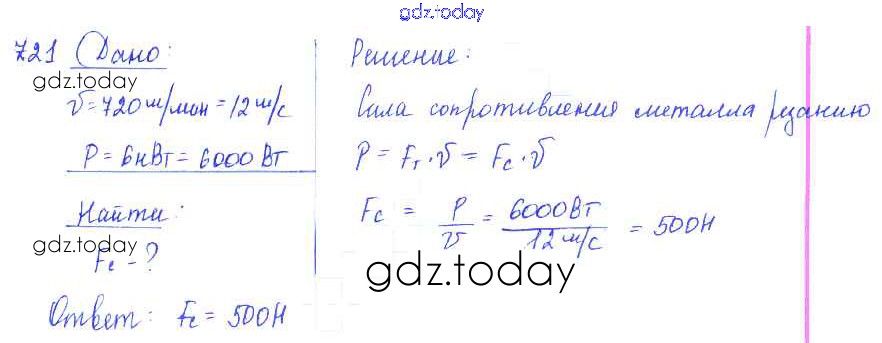 gdz.today
721 Дано:
gdz.today
v = 720 м/мин = 12 м/с
P = 6 кВт = 6000 Вт
Найти:
gdz.today
Fc - ?
Ответ: Fc = 500Н
Решение:
Сила сопротивления металла резанию
P = Fт · v = Fc · v
Fc = P/v = 6000Вт/12 м/с = 500Н
gdz.today